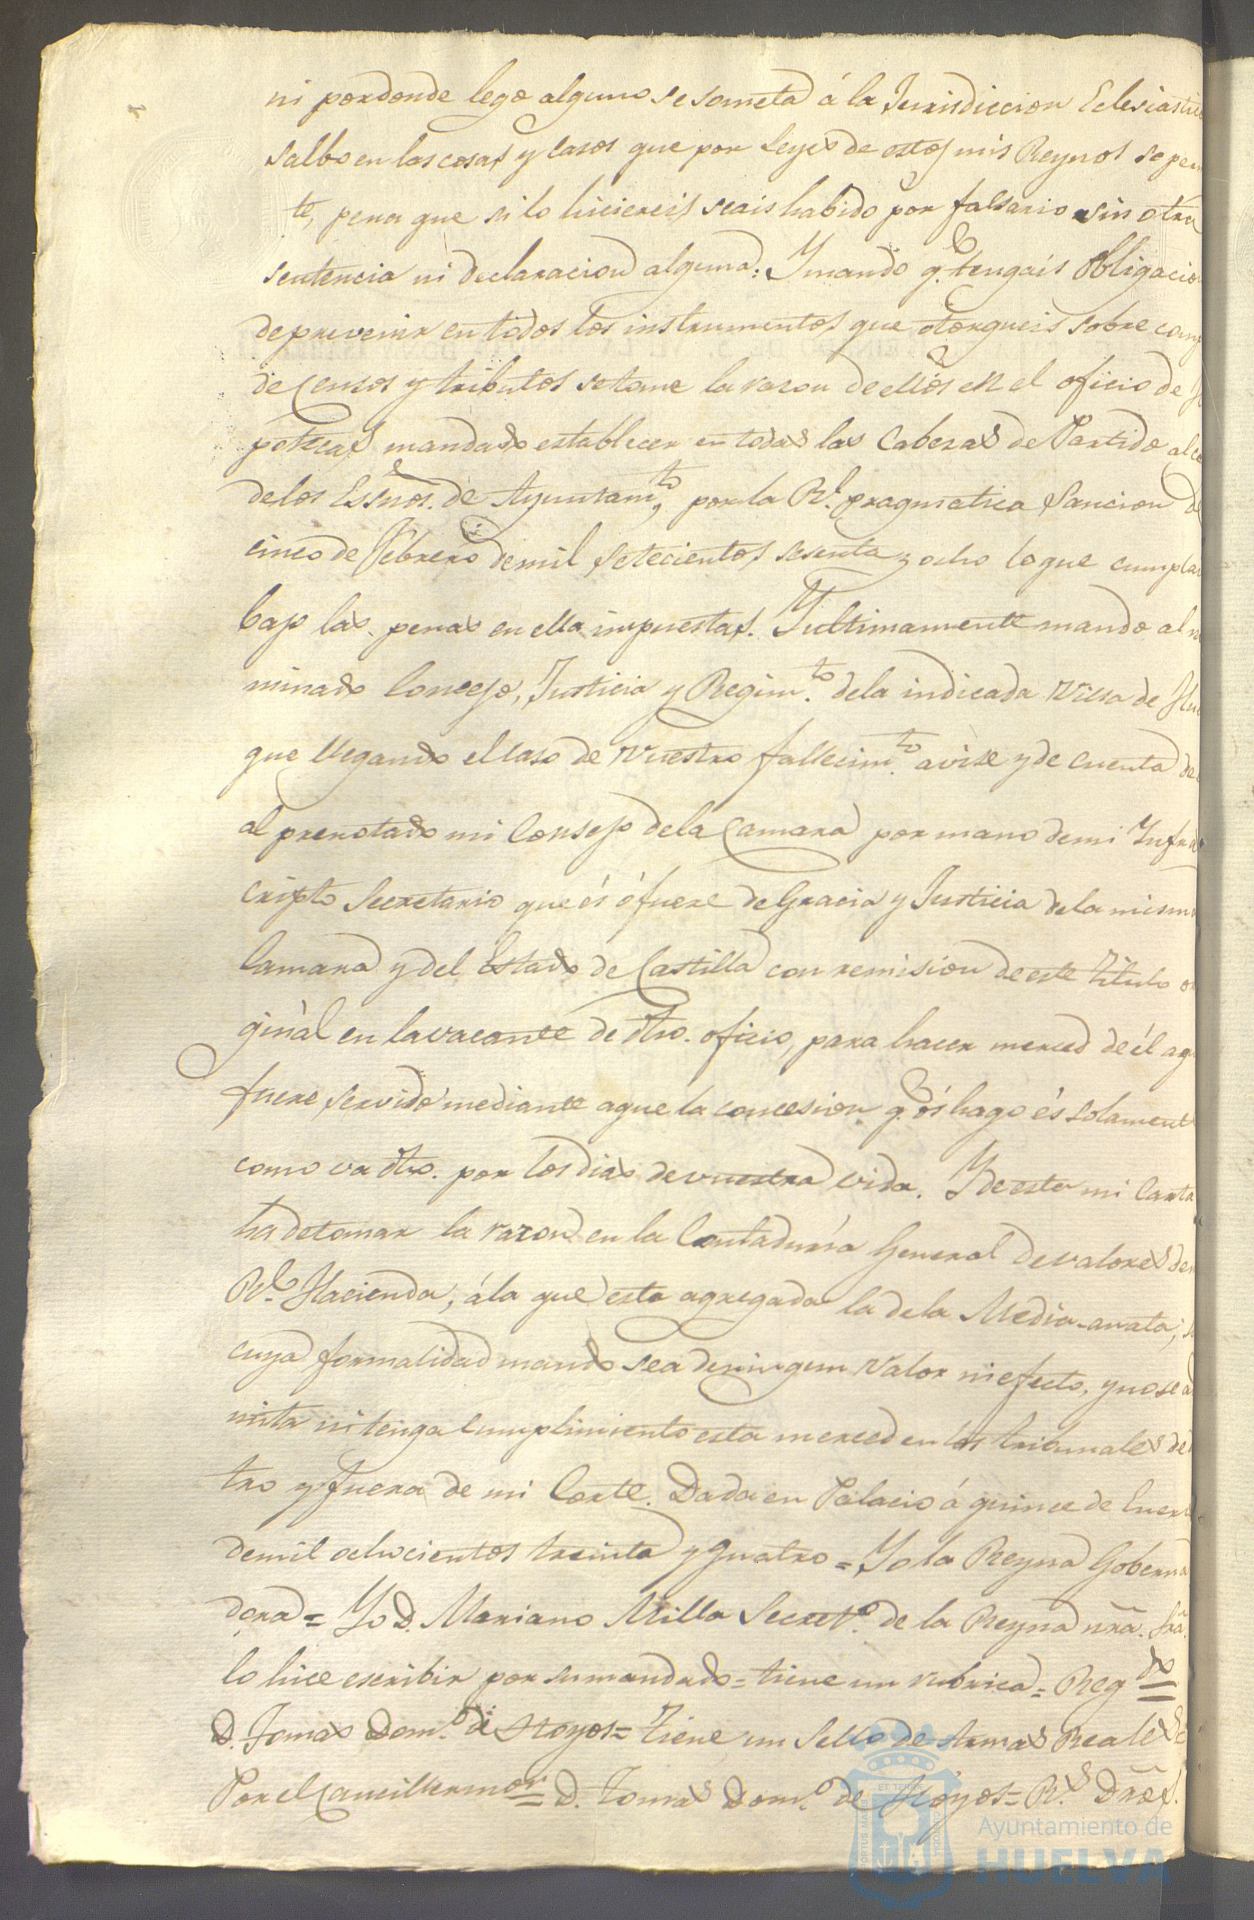 ni por donde lego alguno se someta á la Jurisdiccion Eclesiastic
salbo en las cosas y casos que por Leyes de estos mis Reynos se per
te, pena que si lo hiciereis seais habido por falsario sin otra
sentencia ni declaracion alguna: Y mando q.e tengais obligacio
de prevenir en todos los instrumentos que otorgueis sobre comp
de Censos y tributos se tome la razon de ellos en el oficio de
potecas mandado establecer en todas las Cabezas de Partido al
de los Essnos. de Ayuntam.to, por la R.l pragmatica Sancion d
cinco de Febrero de mil setecientos sesenta y ocho lo que cumpla
bajo las penas en ella impuestas. Y ultimamente mando al n
minado Concejo, Justicia y Regim.to de la indicada Villa de Hu
que llegando el caso de vuestro fallecim.to avise y de cuenta de
al prenotado mi Consejo de la Camara por mano de mi Infra
cripto Secretario que és ó fuere de Gracia y Justicia de la misma
Camara y del Estado de Castilla con remision de este Titulo o
ginal en la vacante de dho. oficio, para hacer merced de él a q
fuere servido mediante a que la concesion q.e os hago és solament
como va dho. por los dias de vuestra vida. Y de esta mi Carta
ha de tomar la razon en la Contaduría General de valores de
R.l Hacienda, á la que esta agregada la de la Media-anata,
cuya formalidad mando sea de ningun valor ni efecto, y no se a
mita ni tenga Cumplimiento esta merced en los tribunales de
tro y fuera de mi Corte. Dada en Palacio á quince de Enero
de mil ochocientos treinta y quatro = Yo la Reyna Goberna
dora = Yo D. Mariano Milla Secret.o de la Reyna nra. Sra.
lo hice escribir por su mandado = tiene un rubrica = Reg.do =
D. Tomas Dom.o de Hoyos = Tiene un Sello de Armas Reales =
Por el Canciller mor. = D. Tomas Dom.o de Hoyos = R.s Dros.
Ayuntamiento de
HUELVA